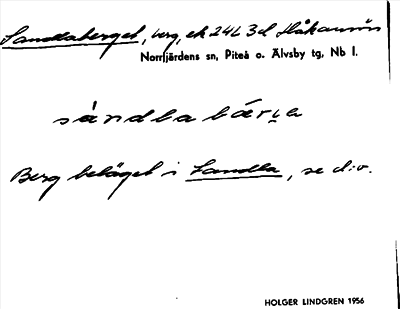 Sandlaberget, berg, ek 24L 3d Håkansön
Norrfjärdens sn, Piteå o. Älvsby tg, Nb l.
sàndlabárya
Berg beläget i Sandla, se d:o.
HOLGER LINDGREN 1956